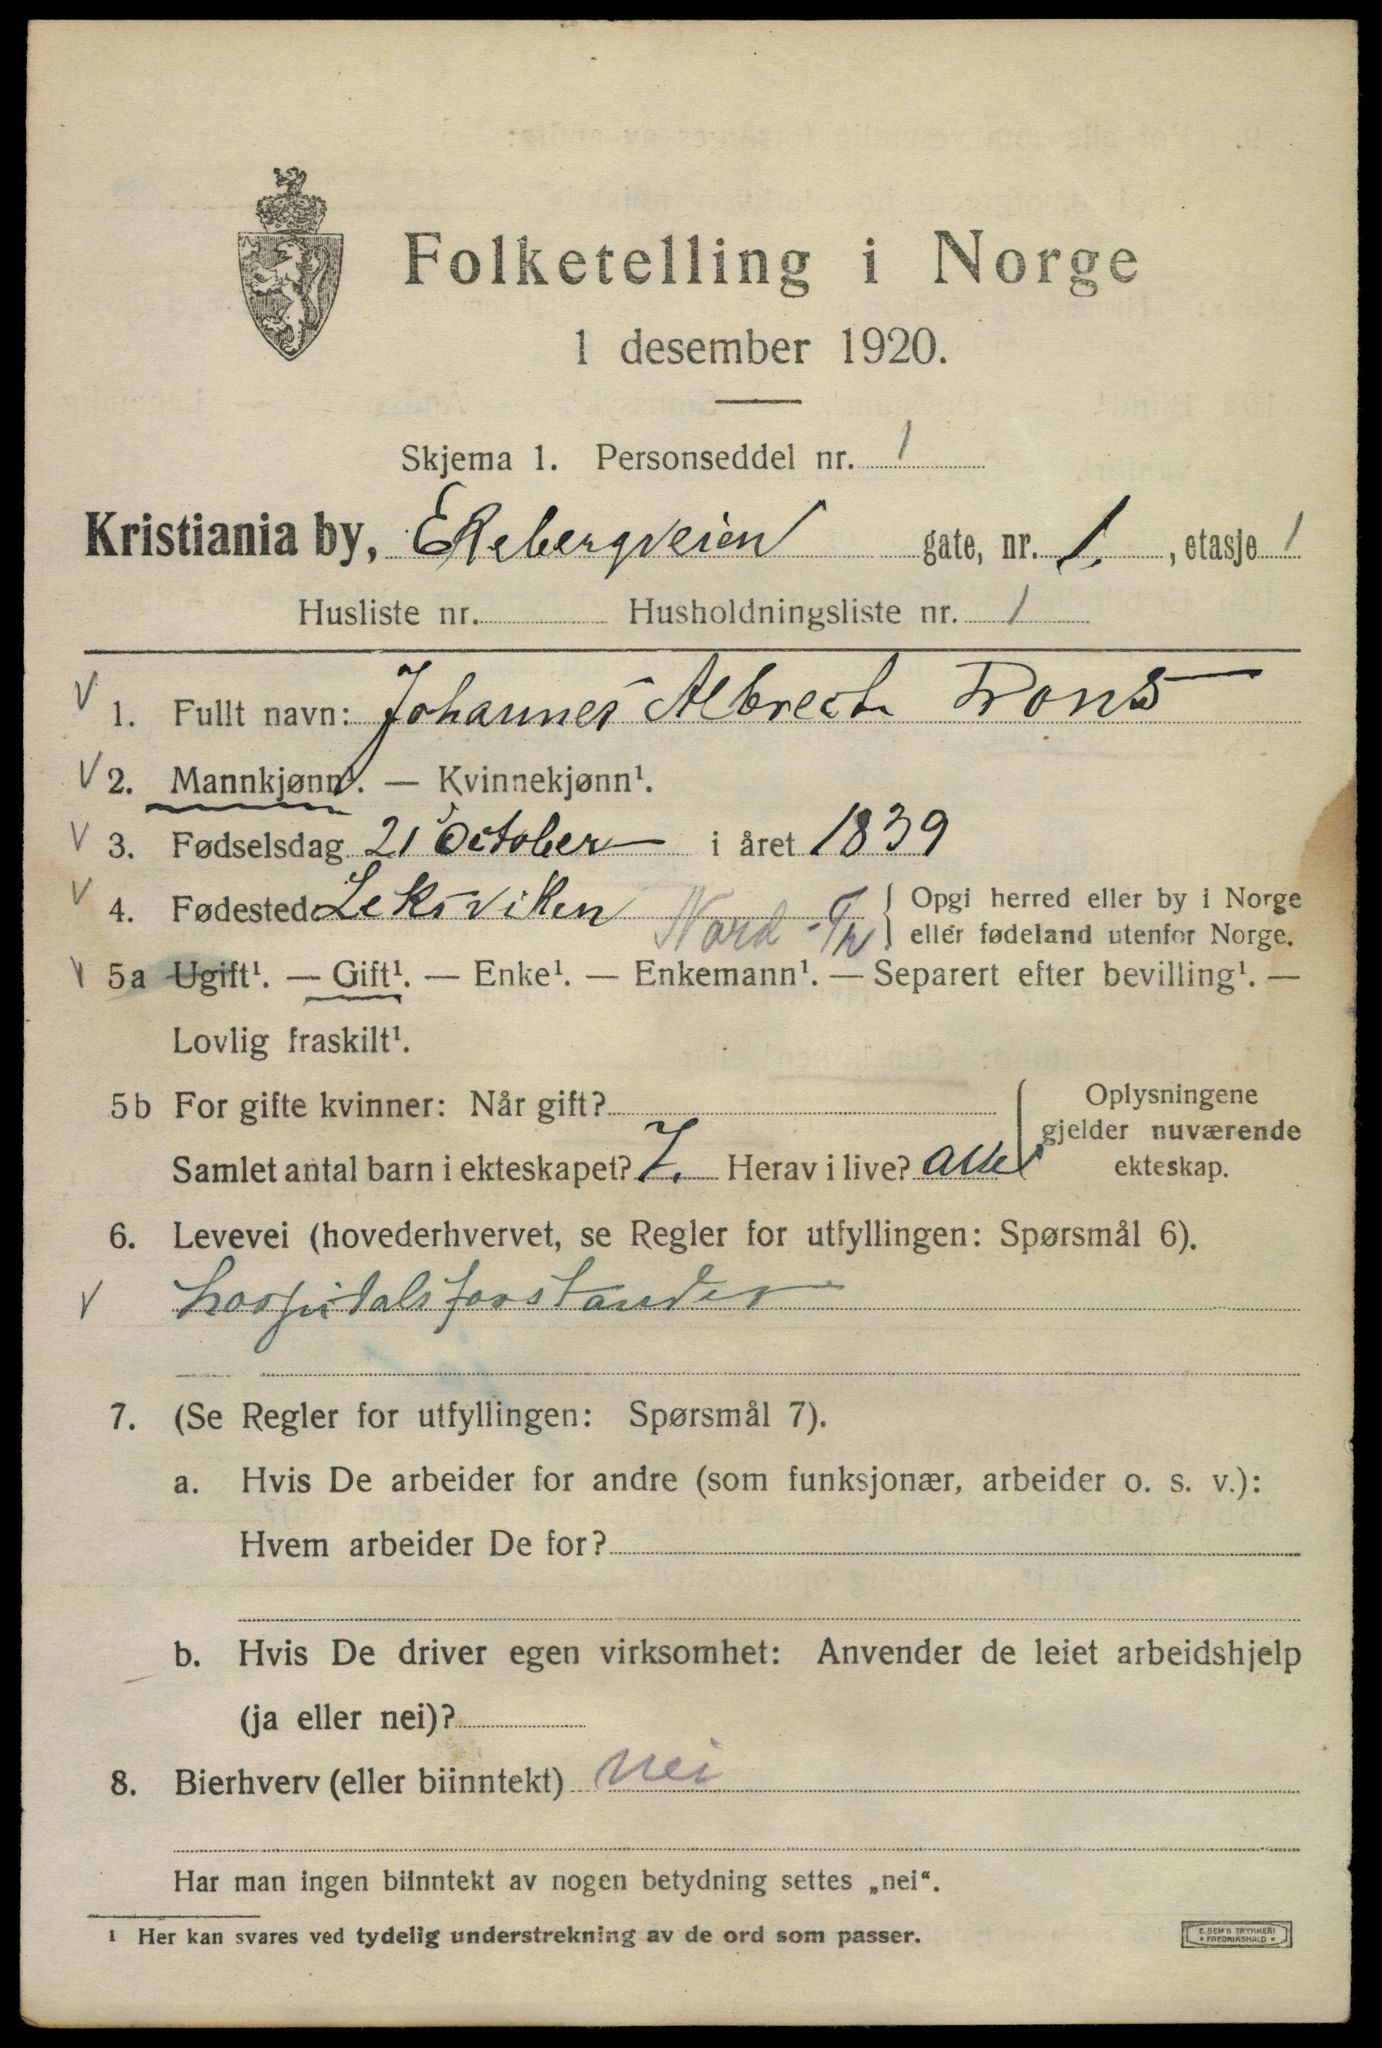 Folketelling i Norge
1 desember 1920.
Skjema 1. Personseddel nr. 1
Kristiania by, Ekebergveien gate, nr. 1. , etasje 1
Husliste nr. Husholdningsliste nr. 1
1. Fullt navn: Johannes Albrecht
2. Mannkjønn¹. — Kvinnekjønn¹.
3. Fødselsdag 21 October i året 1839
4. Fødested Leksviken Nord-Tr { Opgi herred eller by i Norge
eller fødeland utenfor Norge.
5a Ugift¹. — Gift¹. — Enke¹. — Enkemann¹. — Separert efter bevilling¹. —
Lovlig fraskilt¹.
5b For gifte kvinner: Når gift?
Samlet antal barn i ekteskapet? 7. Herav i live? alle
Oplysningene
gjelder nuværende
ekteskap.
6. Levevei (hovederhvervet, se Regler for utfyllingen: Spørsmål 6).
hospitalsforstander
7. (Se Regler for utfyllingen: Spørsmål 7).
a. Hvis De arbeider for andre (som funksjonær, arbeider o. s. v.):
Hvem arbeider De for?
b. Hvis De driver egen virksomhet: Anvender de leiet arbeidshjelp
(ja eller nei)?
8. Bierhverv (eller biinntekt) nei
Har man ingen biinntekt av nogen betydning settes „nei“.
¹ Her kan svares ved tydelig understrekning av de ord som passer.
E. SEM'S TRYKKERI
* FREDRIKSHALD *